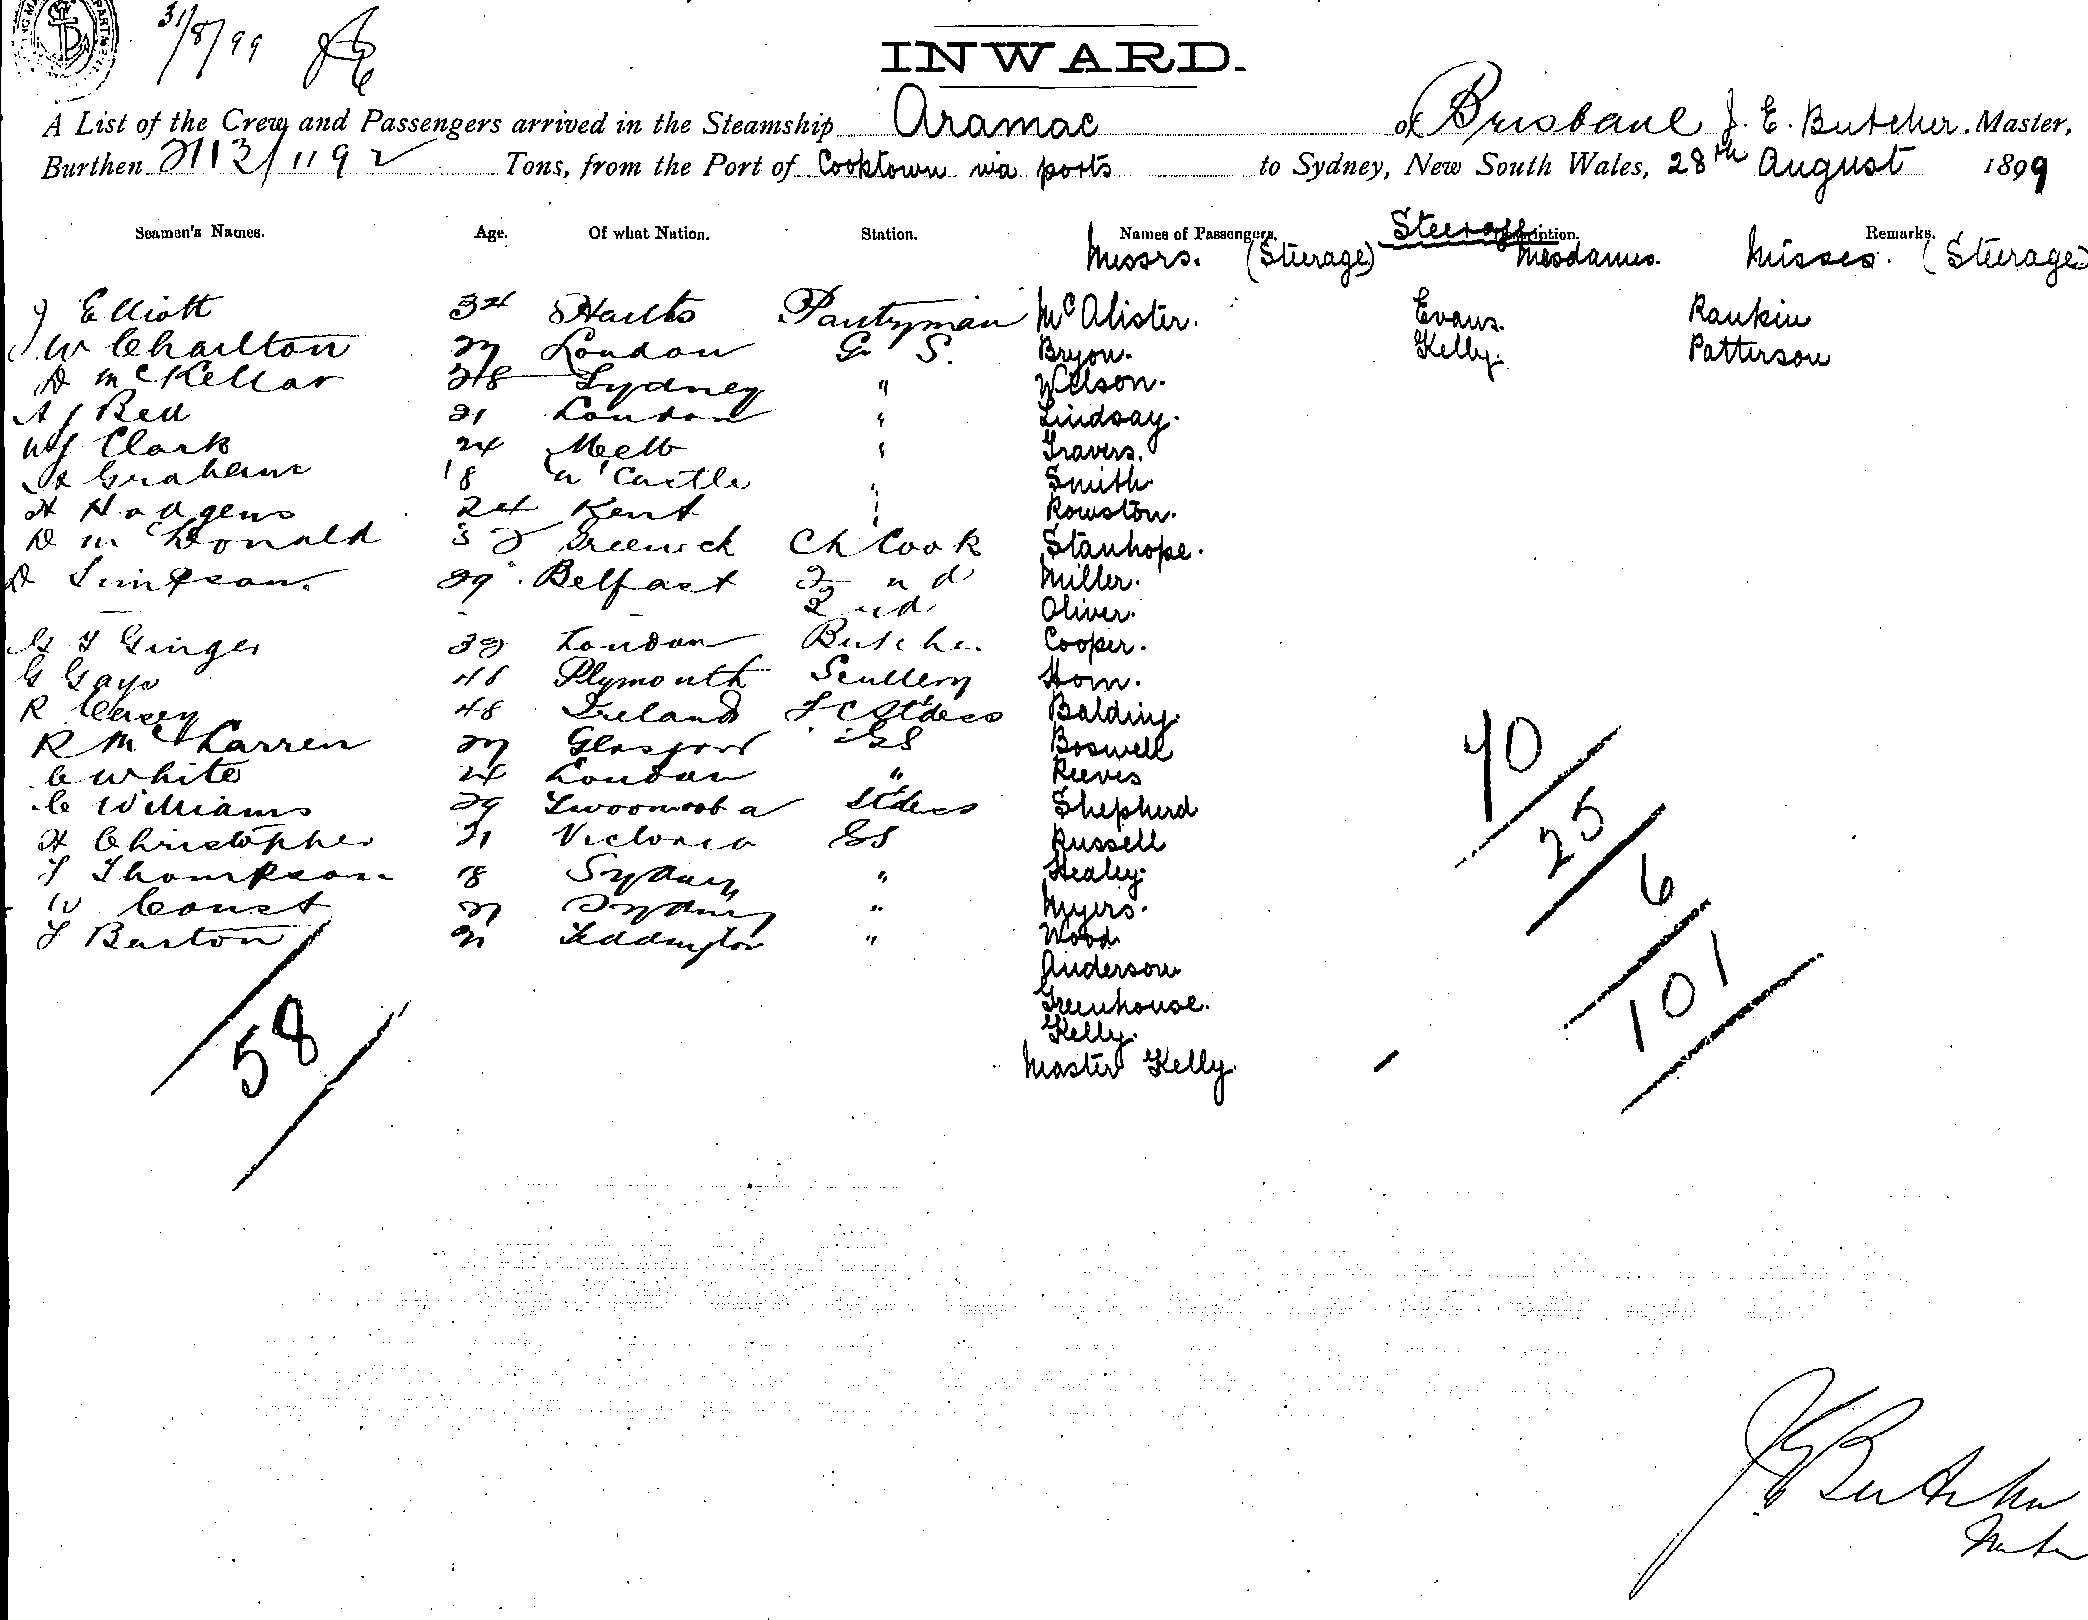 31/8/99
INWARD.
A List of the Crew and Passengers arrived in the Steamship Aramac of Brisbane J. E. Butcher. Master,
Burthen 2113/1192 Tons, from the Port of Cooktown via ports to Sydney, New South Wales, 28th August 1899
Seamen's Names. Age. Of what Nation. Station. Names of Passengers. Description. Remarks.
Messrs. (Steerage) Mesdames. Misses. (Steerage)
J Elliott 34 Pantryman McAlister. Evans. Rankin
J W Charlton 27 London G. S. Bryon. Kelly. Patterson
D McKellar 28 Sydney " Wilson.
A J Bell 21 London " Lindsay.
W J Clark 24 Melb " Travers.
Graham 18 N'Castle " Smith.
H Hodgens 24 Kent " Rowston.
D McDonald 32 Greenwich Ch Cook Stanhope.
D Simpson. 29 Belfast 2nd Miller.
2nd Oliver.
G T Ginger London Butcher Cooper.
G Gays Plymouth Scullery Horn.
R Casey 48 Ireland F C Stdess Balding.
R McLarren 27 Glasgow GS Boswell
C White 24 London " Reeves
C Williams 29 Twoomooba Stdess Shepherd
H Christopher 21 Victoria GS Russell
T Thompson 18 Sydney " Healey.
W Coust 27 Sydney " Myers.
T Barton 21 Teddington " Wood.
Anderson
Greenhouse.
Kelly.
Master Kelly.
58
40
25
6
101
J E Butcher
Master